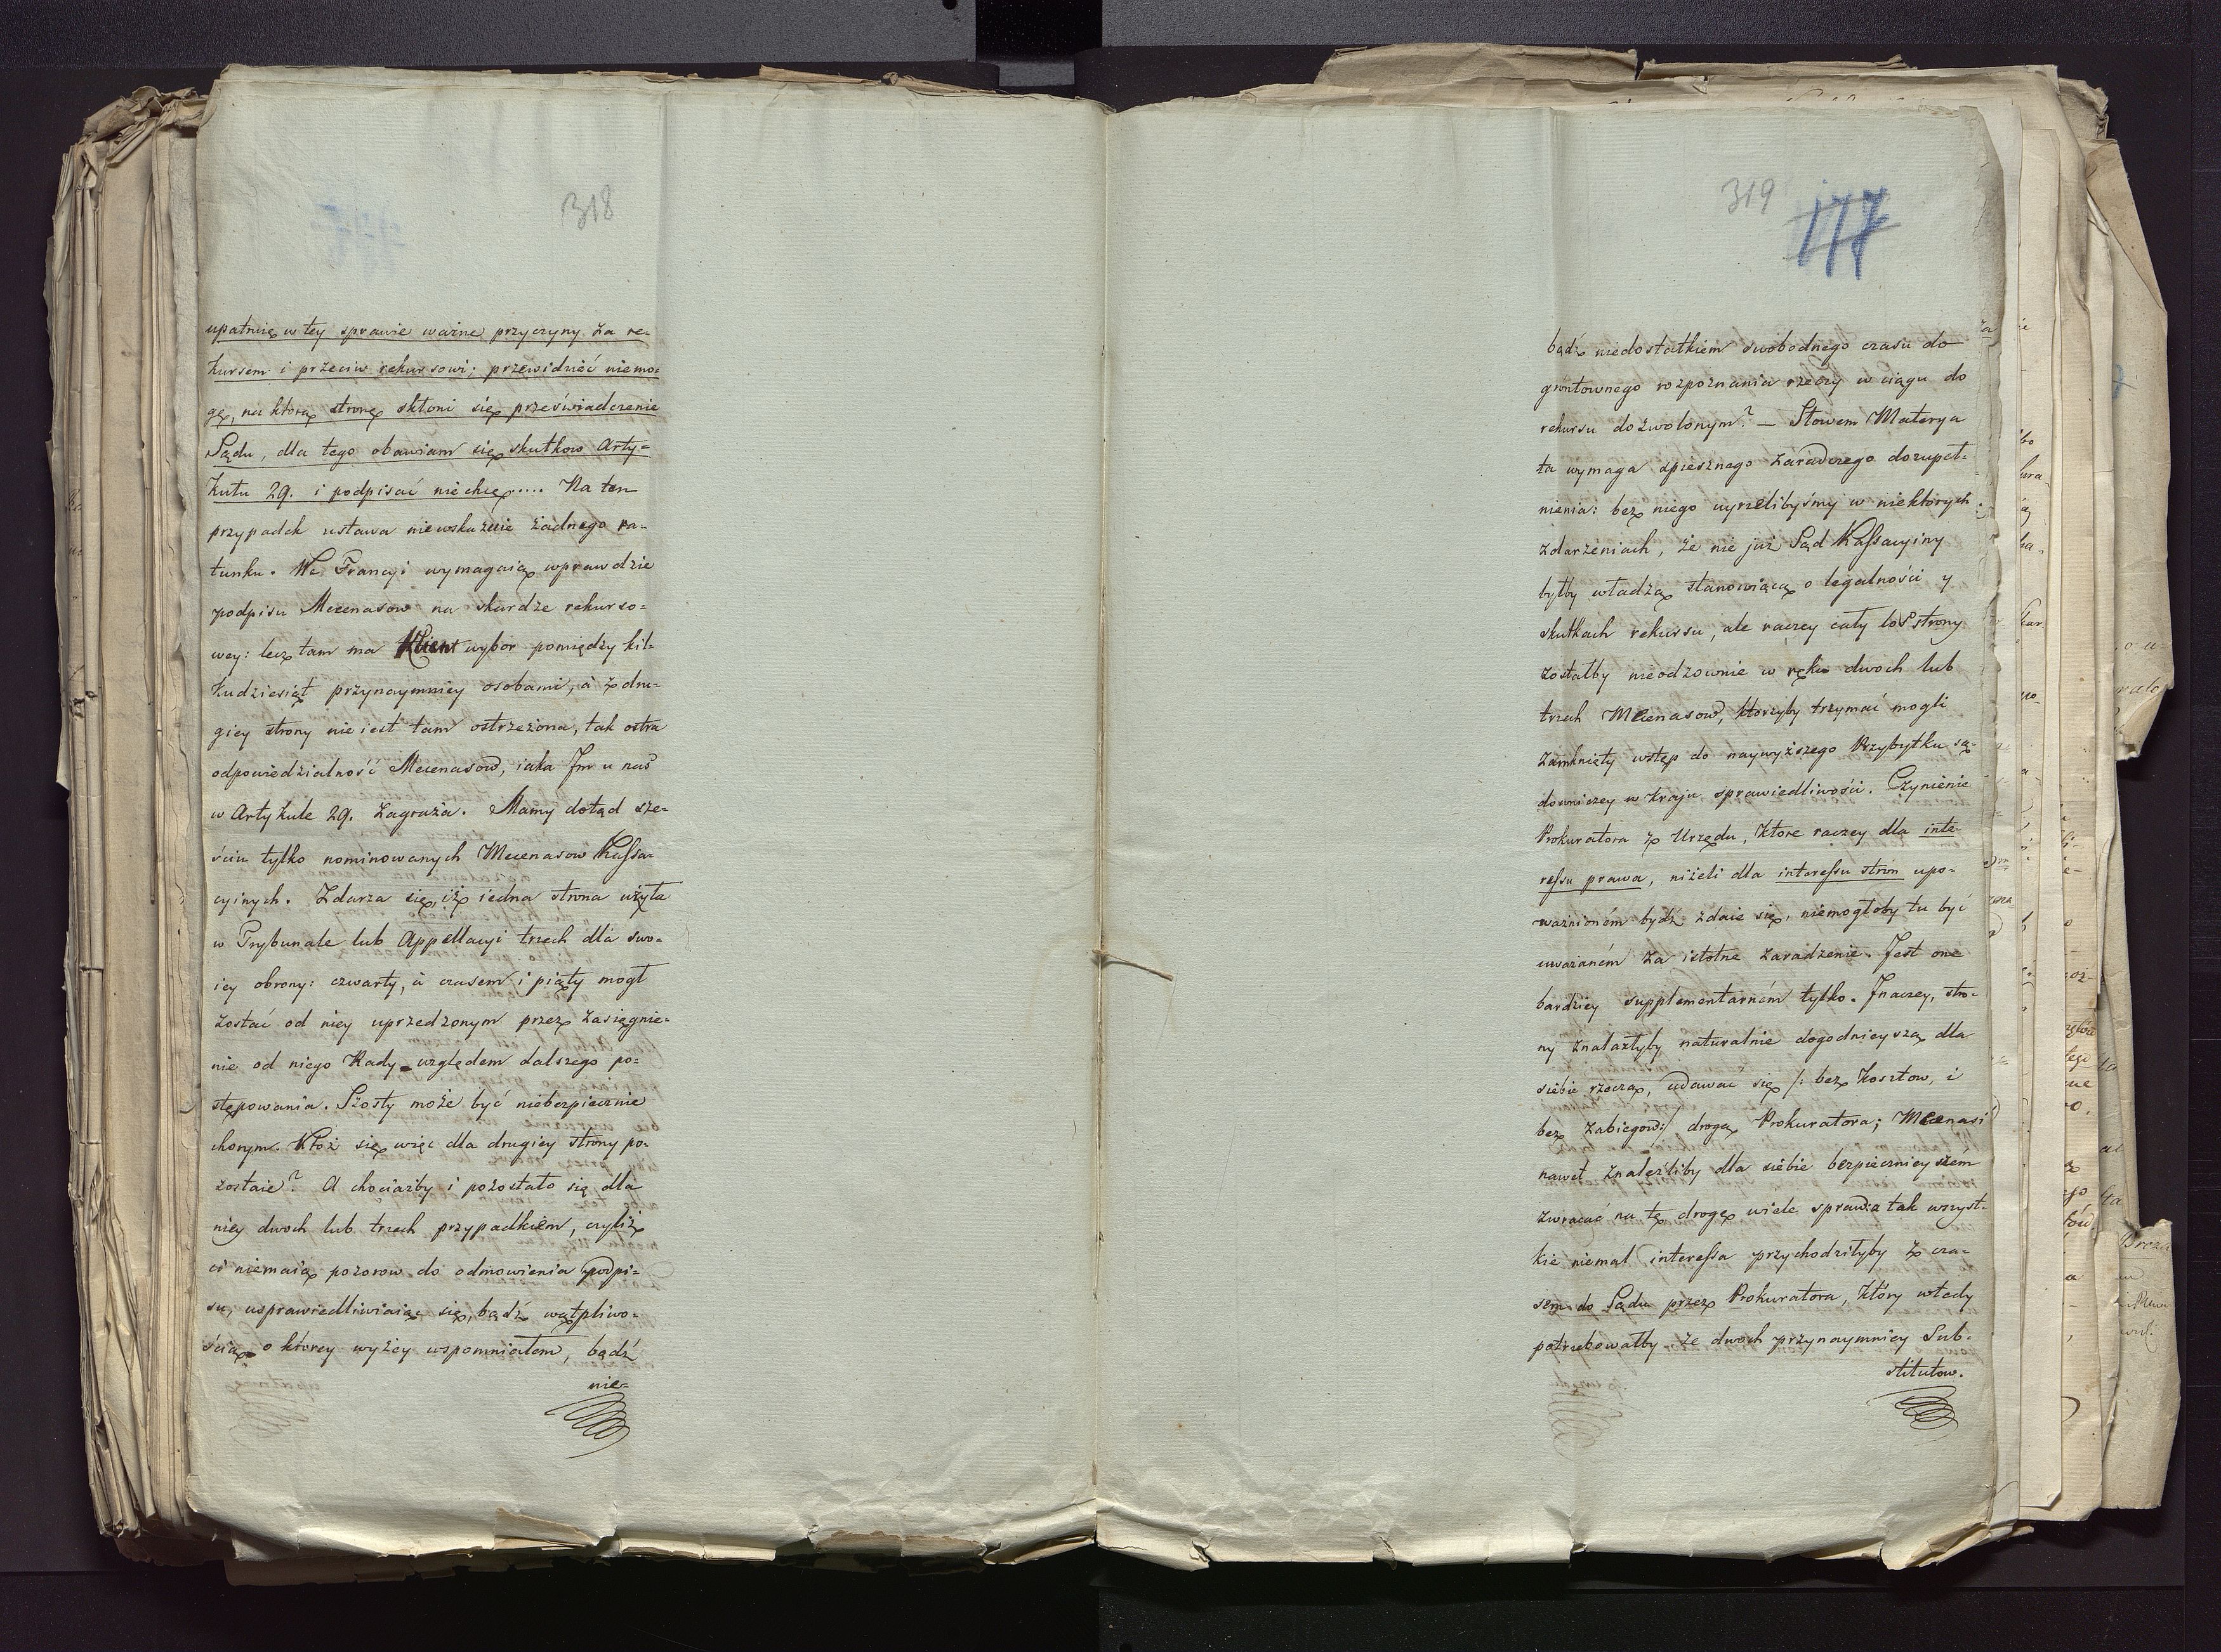 318
upatruię w tey sprawie ważne przyczyny za re-
kursem i przeciw rekursowi; przewidzieć niemo-
gę, na ktorą stronę skłoni się przeświadczenie
Sądu, dla tego obawiam się skutkow Arty-
kułu 29. i podpisać niechcę.... Na ten
przypadek ustawa niewskazuie żadnego ra-
tunku. We Francyi wymagaią wprawdzie
podpisu Mecenasow na skardze rekurso-
wey: lecz tam ma Klient wybor pomiędzy kil-
kudziesiąt przynaymniey osobami, à z dru-
giey strony nie iest tam ostrzeżona, tak ostra
odpowiedzialność Mecenasow, iaka Im u nas
w Artykule 29. zagraża. Mamy dotąd sze-
ściu tylko nominowanych Mecenasow Kassa-
cyinych. Zdarza się, iż iedna strona użyła
w Trybunale lub Appellacyi trzech dla swo-
iey obrony: czwarty, à czasem i piąty mogł
zostać od niey uprzedzonym przez zasięgnie-
nie od niego Rady względem dalszego po-
stępowania. Szosty może być niebezpiecznie
chorym. Ktoż się więc dla drugiey strony po-
zostaie? A chociażby i pozostało się dla
niey dwoch lub trzech przypadkiem, czyliż
ci niemaią pozorow do odmowienia podpi-
su, usprawiedliwiaiąc się, bądź wątpliwo-
ścią o ktorey wyżey wspomniałem, bądź
nie-
319
177
bądź niedostatkiem swobodnego czasu do
gruntownego rozpoznania rzeczy w ciągu do
rekursu dozwolonym? — Słowem Materya
ta wymaga spiesznego zaradczego dozupeł-
nienia: bez niego uyrzelibyśmy w niektorych
zdarzeniach, że nie już Sąd Kassacyiny
byłby władzą stanowiącą o legalności y
skutkach rekursu, ale raczey cały los strony
zostałby nieodzownie w ręku dwoch lub
trzech Mecenasow, ktorzyby trzymać mogli
zamknięty wstęp do naywyższego Przybytku są-
downiczey w kraju sprawiedliwości. Czynienie
Prokuratora z Urzędu, ktore raczey dla inte-
ressu prawa, niżeli dla interessu stron upo-
ważnioném bydź zdaie się, niemogłoby tu być
uważaném za istotne zaradzenie. Jest one
bardziey supplementarném tylko. Inaczey, stro-
ny znalazłyby naturalnie dogodnieyszą dla
siebie rzeczą, udawać się /: bez kosztow, i
bez zabiegow:/ drogą Prokuratora; Mecenasi
nawet znaleźliby dla siebie bezpiecznieyszém
zwracać na tę drogę wiele spraw: a tak wszyst-
kie niemal interessa przychodziłyby z cza-
sem do Sądu przez Prokuratora, ktory wtedy
potrzebowałby ze dwoch przynaymniey Sub-
stitutow.